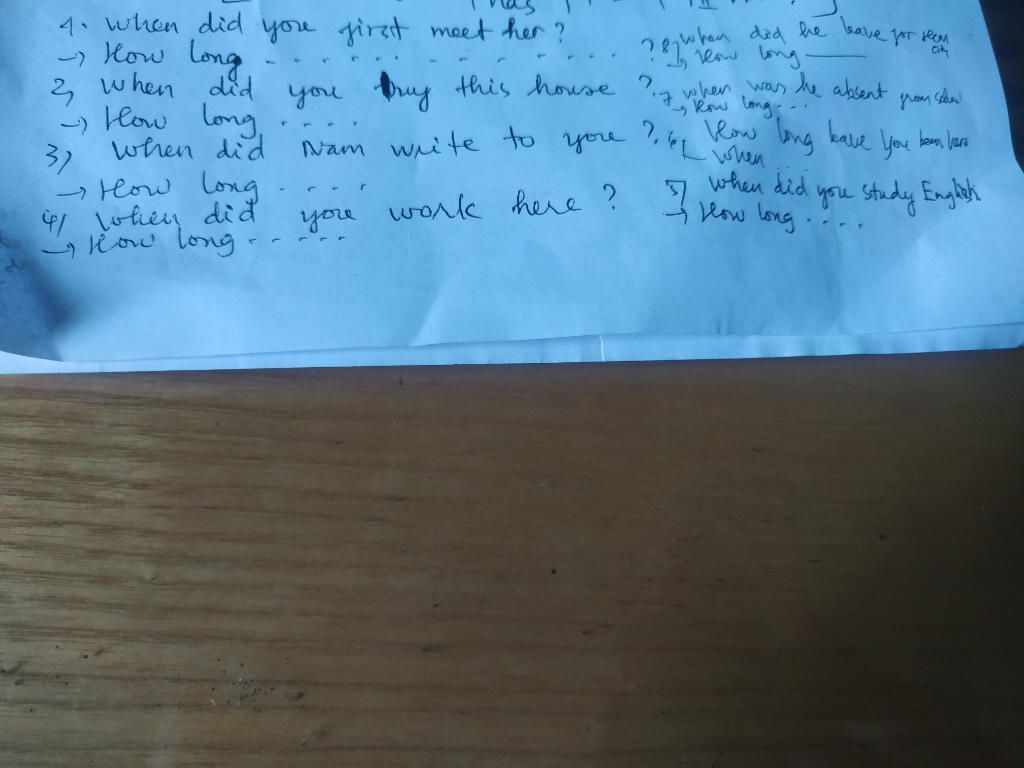 has
1. When did you first meet her?
→ How long .............. ?
2, When did you buy this house ?
→ How long ....
3) When did Nam write to you ?
→ How long ....
4) When did you work here ?
→ How long .....
5) When did you study English
→ How long ....
6) How long have you been here
When ...
7, When was he absent from
→ How long ...
8) When did he leave for
city
→ How long